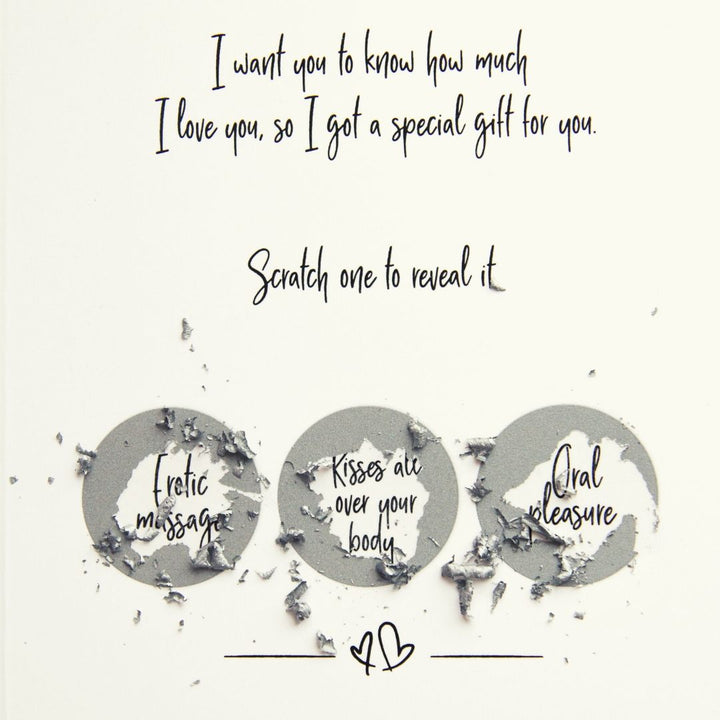 I want you to know how much
I love you, so I got a special gift for you.
Scratch one to reveal it
Erotic
massage
Kisses all
over your
body
Oral
pleasure